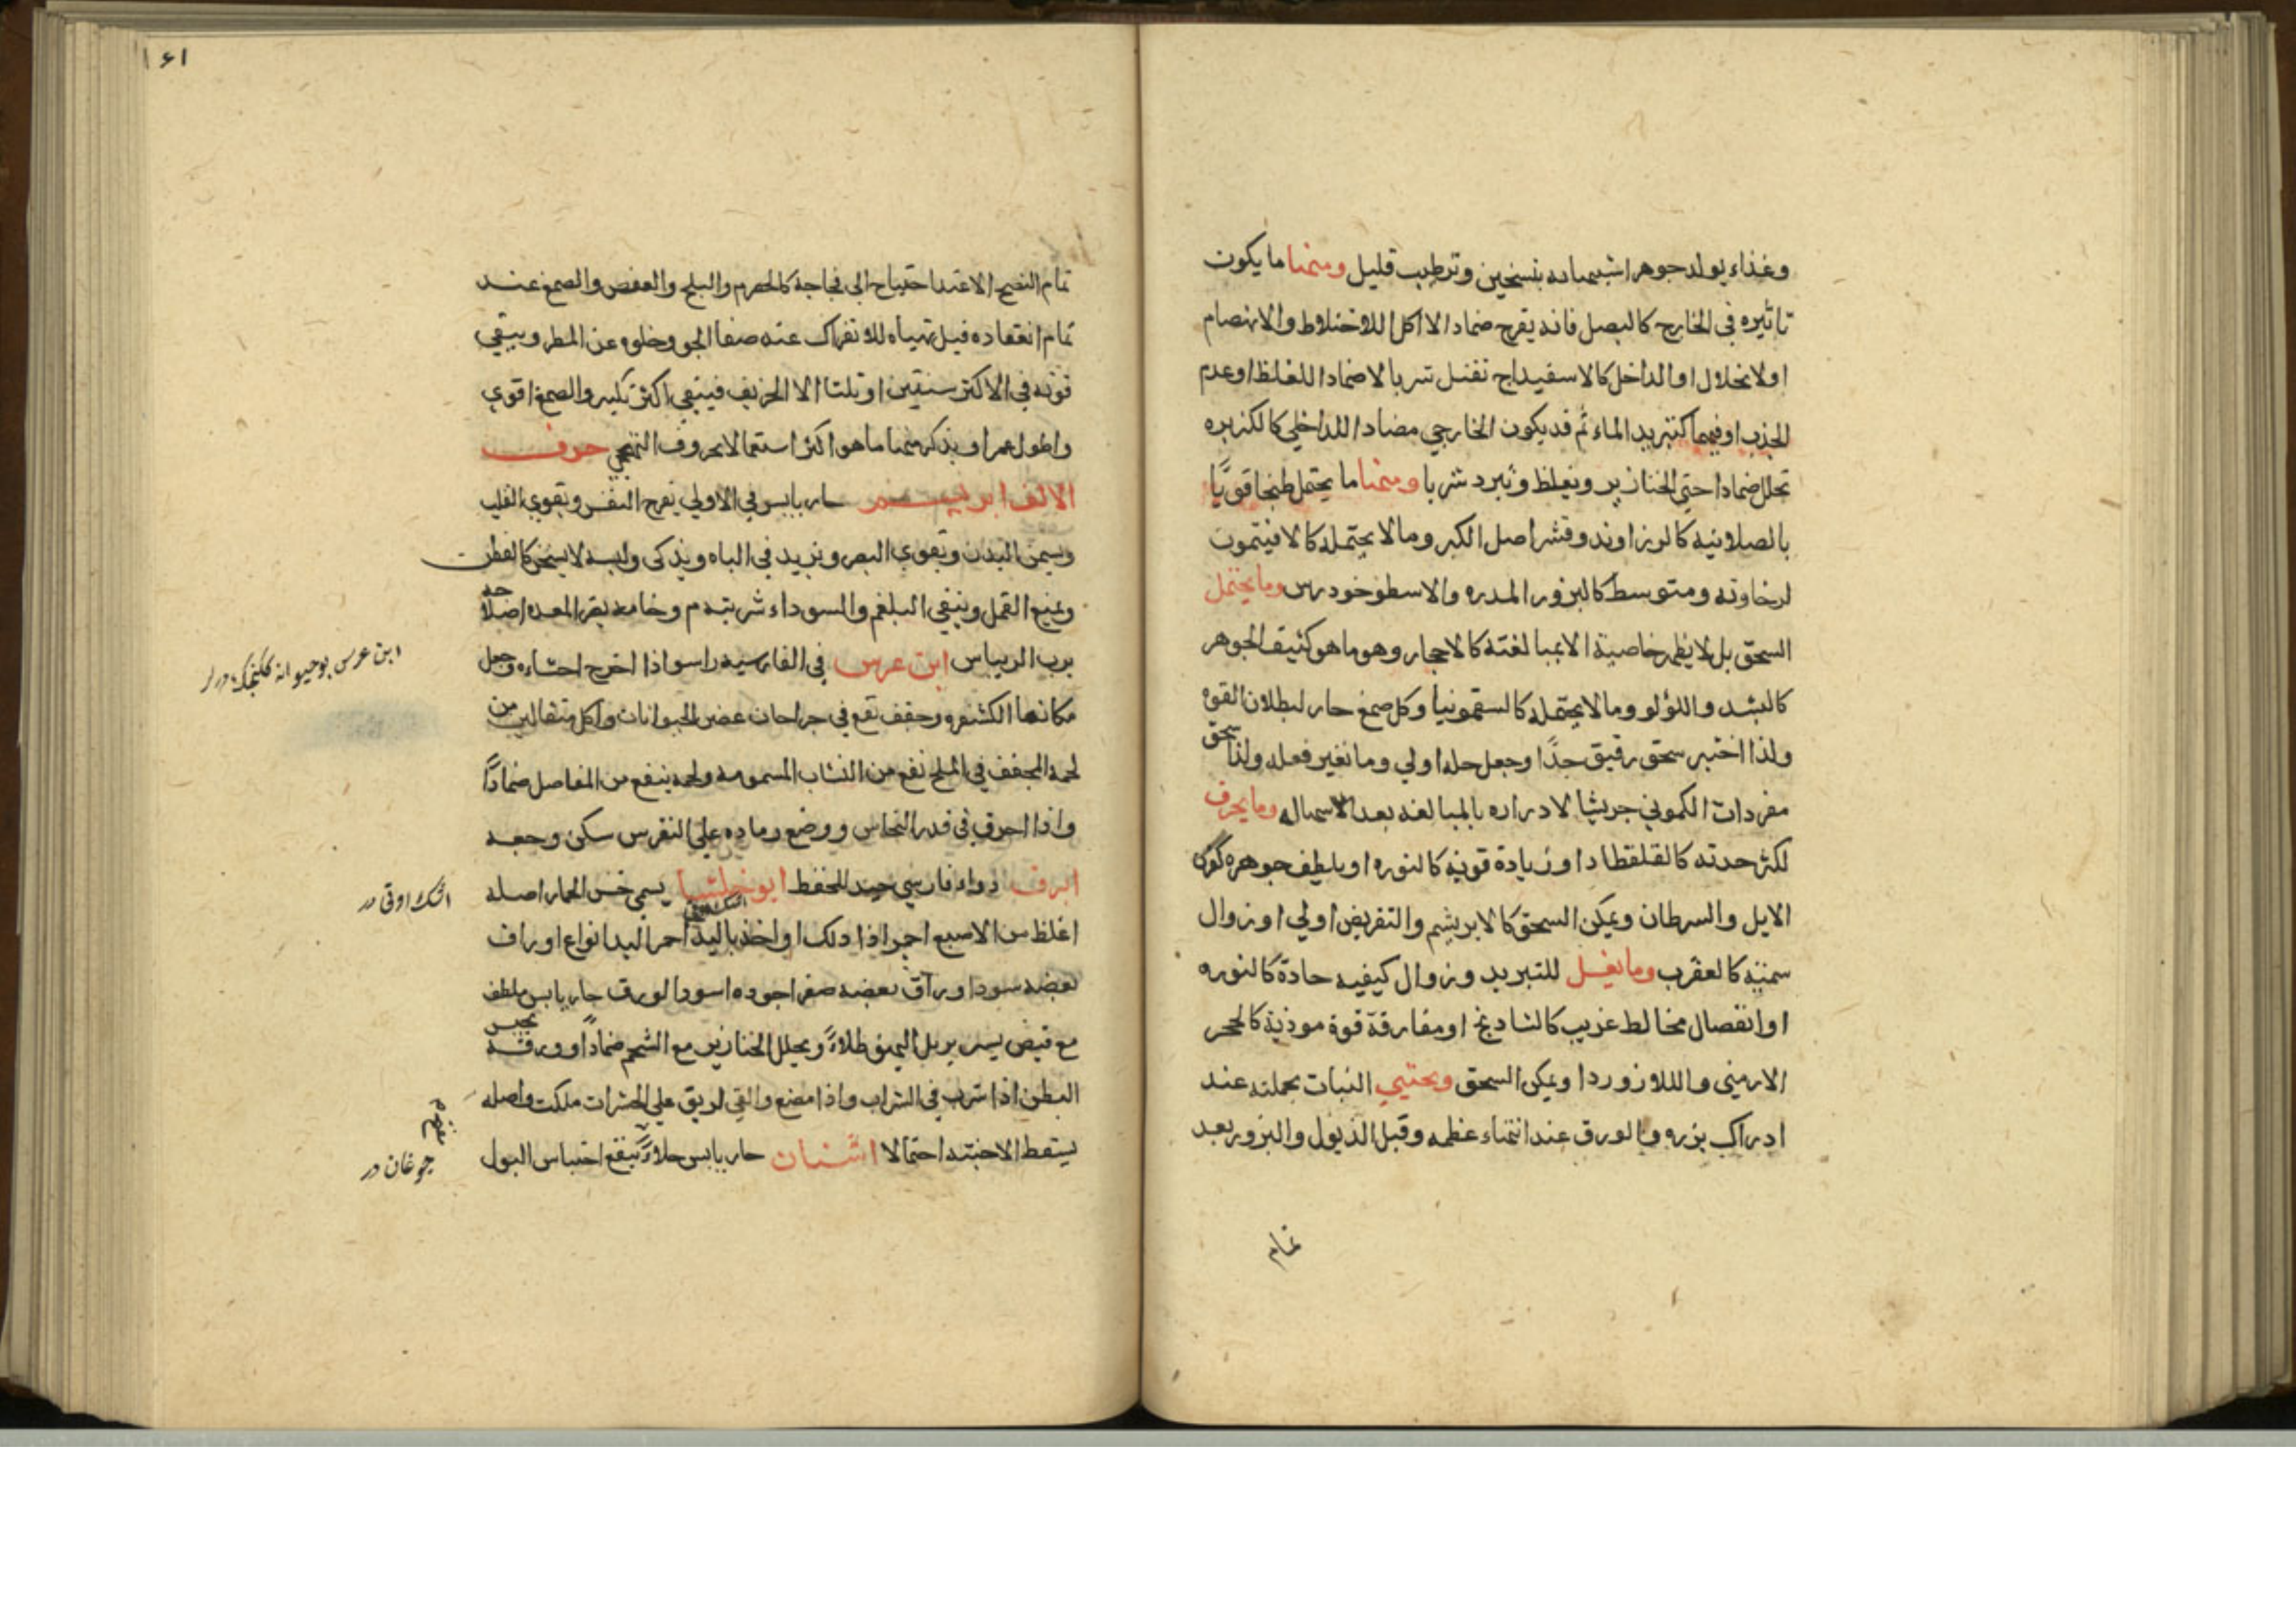 وغذاء يولد جوهرا شبيها به بتسخين وترطيب قليل ومنها ما يكون
تاثيره في الخارج كالبصل فانه يقرح ضمادا لا اكلا للاختلاط والانهضام
او لانحلال او الداخل كالاسفيداج تقتل شربا لا ضمادا للغلظ او عدم
الجذب او فيهما كتبريد الماء ثم قد يكون الخارجي مضادا للداخلي كالكزبره
تحلل ضمادا حتى الخنازير ويغلظ وتبرد شربا ومنها ما يحتمل طبخا قويا
بالصلابة كالزراوند وقشر اصل الكبر وما لا يحتمله كالافيتمون
لرخاوته ومتوسط كالبزور المدره والاسطوخودوس وما يحتمل
السحق بل لا يظهر خاصيته الا بمبالغته كالاحجار وهو ما هو كثيف الجوهر
كالبشد واللؤلو وما لا يحتمله كالسقمونيا وكل صمغ حار لبطلان القوه
ولذا اختير سحق رقيق جدا وجعل حله اولي وما تغير فعله ولذا سحق
مفردات الكموني جريشا لادراره بالمبالغه بعد الاسهال وما يحرق
لكثر حدته كالقلقطار او زيادة قوته كالنوره او يلطف جوهره كقرن
الايل والسرطان ويمكن السحق كالابريشم والتقريض اولي او زوال
سمّيته كالعقرب وما يغسل للتبريد وزوال كيفيه حادة كالنوره
او انفصال مخالط غريب كالشادنج او مفارقة قوة موذية كالحجر
الارمني واللازورد او يمكن السحق ويجتني النبات بجملته عند
ادراك بزره والورق عند انتهاء عظمه وقبل الذبول والبزور بعد
تمام
١٦١
تمام النضج الا عند احتياج الى فجاجة كالحصرم والبلح والعفص والصمغ عند
تمام انعقاده قبل تهياه للانفراك عند صفا الجو وخلوه عن المطر ويبقي
قوته في الاكثر سنتين او ثلثا الا الخربق فيبقي اكثر بكثير والصمغ اقوي
واطول عمرا ويذكر منها ما هو اكثر استعمالا بحروف التهجي حرف
الالف ابريسم حار يابس في الاولي يفرح النفس ويقوي القلب
ويسمن البدن ويقوي البصر ويزيد في الباه ويذكى ولبسه لا يسخن كالقطن
ويمنع القمل وينقي البلغم والسوداء شربته م وخامه يضر المعده اصلاحه
برب الريباس ابن عرس في الفارسيه راسو اذا اخرج احشاءه وجعل
مكانها الكشفره وجفف نفع في جراحات عض الحيوانات واكل مثقالين من
لحمه المجفف في الملح نفع من النشاب المسمومه ولحمه ينفع من المفاصل ضمادا
واذا احرق في قدر النحاس ووضع رماده على النقرس سكن وجعه
ابرق دواء فارسي جيد للحفظ ابوخلسا يسمي خس الحمار اصله
اغلظ من الاصبع احمر اذا دلك او اخذ باليد احمر اليد انواع اوراق
بعضه سود اوراق بعضه صفر اجوده اسود الورق حار يابس ملطف
مع قبض يسير يزيل البهق طلاءً ويحلل الخنازير مع الشحم ضمادا وورقه يحبس
البطن اذا شرب في الشراب واذا مضغ والقي الريق على الحشرات هلكت واصله
يسقط الاجنة احتمالا اشنان حار يابس جلاء ينفع احتباس البول
ابن عرس بو حيوانه كلنجك درلر
اشك اوتى در
چوغان در